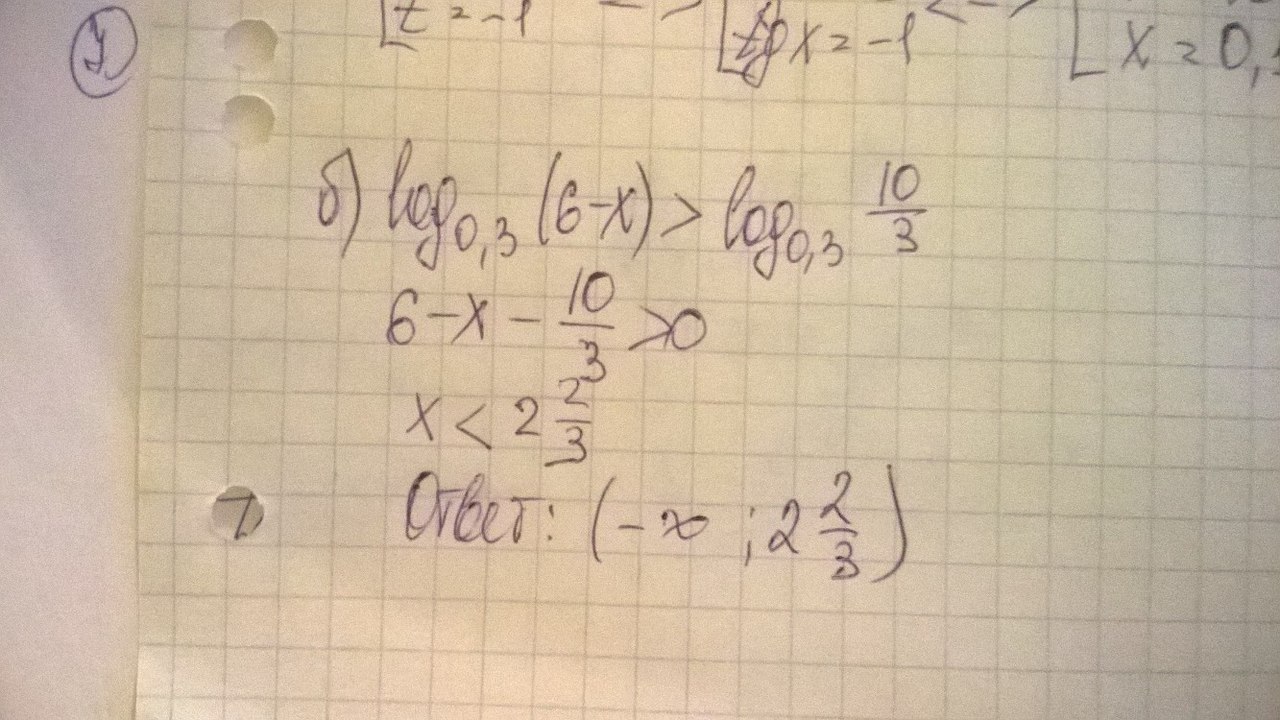 t = -1
tg x = -1 <=>
x = 0,
б) log₀,₃ (6-x) > log₀,₃ 10/3
6-x - 10/3 > 0
x < 2 2/3
Ответ: (-∞ ; 2 2/3)